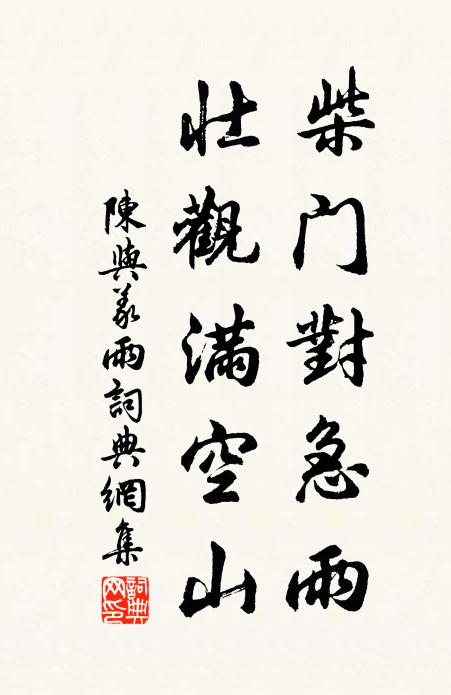 柴门對急雨
壮觀滿空山
陳與義雨詞典網集
詞典网印